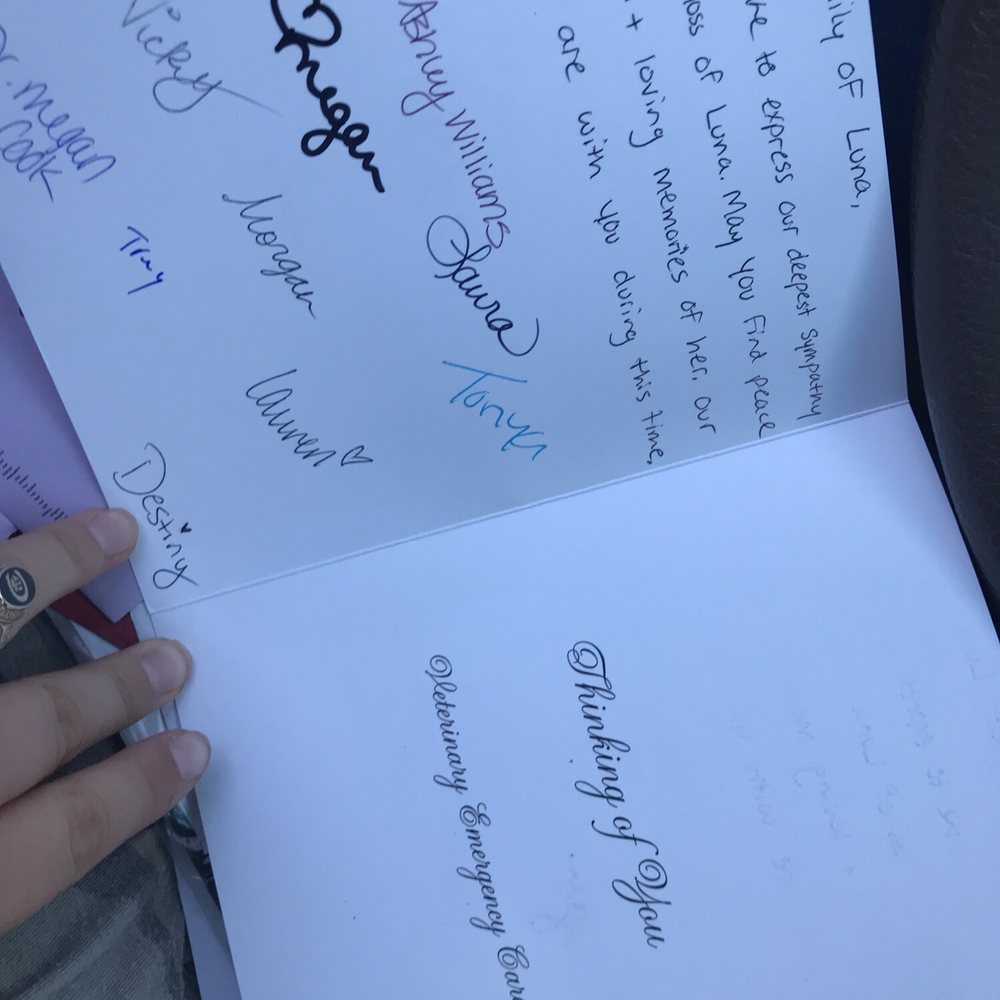 ily of Luna,
re to express our deepest sympathy
loss of Luna. May you find peace
+ loving memories of her. Our
are with you during this time.
Laura
Tonya
Megan
Morgan
Lauren
Vicky
Destiny
Dr. Megan
Cook
Thinking of You
Veterinary Emergency Care